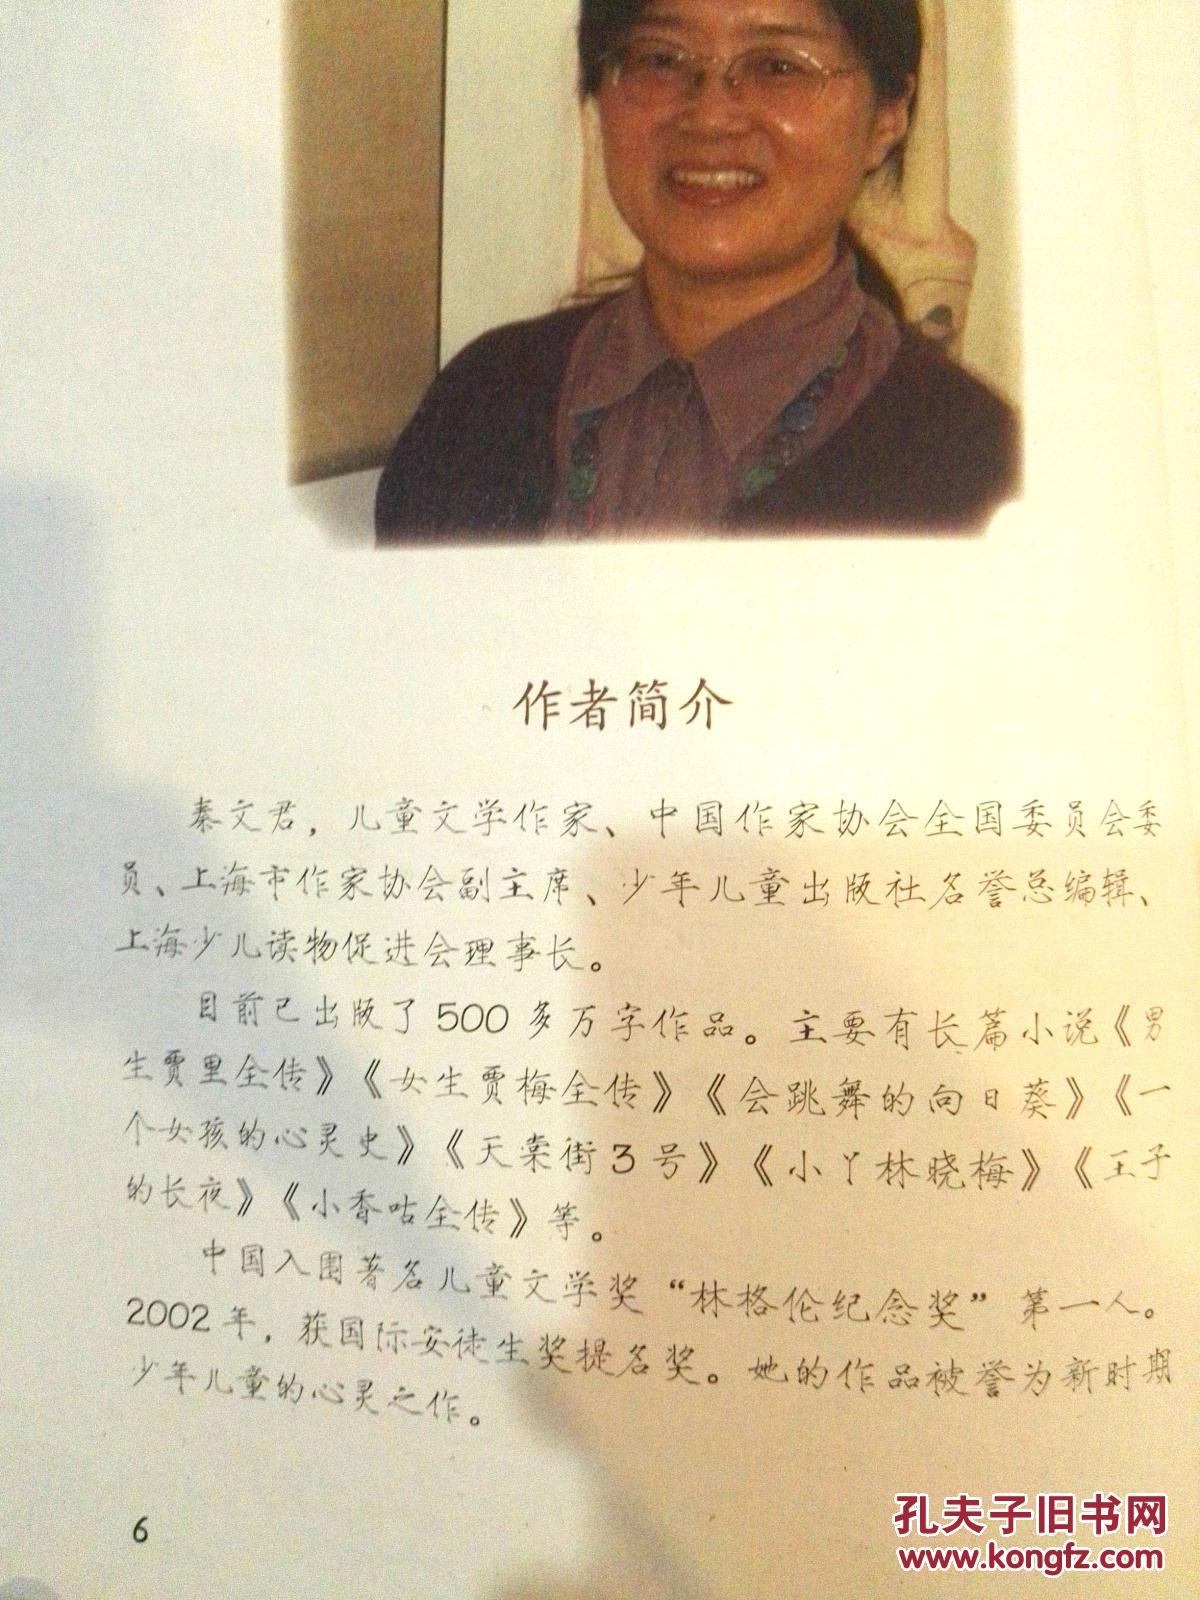 作者简介
秦文君，儿童文学作家、中国作家协会全国委员会委
员、上海市作家协会副主席、少年儿童出版社名誉总编辑、
上海少儿读物促进会理事长。
目前已出版了500多万字作品。主要有长篇小说《男
生贾里全传》《女生贾梅全传》《会跳舞的向日葵》《一
个女孩的心灵史》《天棠街3号》《小丫林晓梅》《王子
的长夜》《小香咕全传》等。
中国入围著名儿童文学奖“林格伦纪念奖”第一人。
2002年，获国际安徒生奖提名奖。她的作品被誉为新时期
少年儿童的心灵之作。
6
孔夫子旧书网
www.kongfz.com